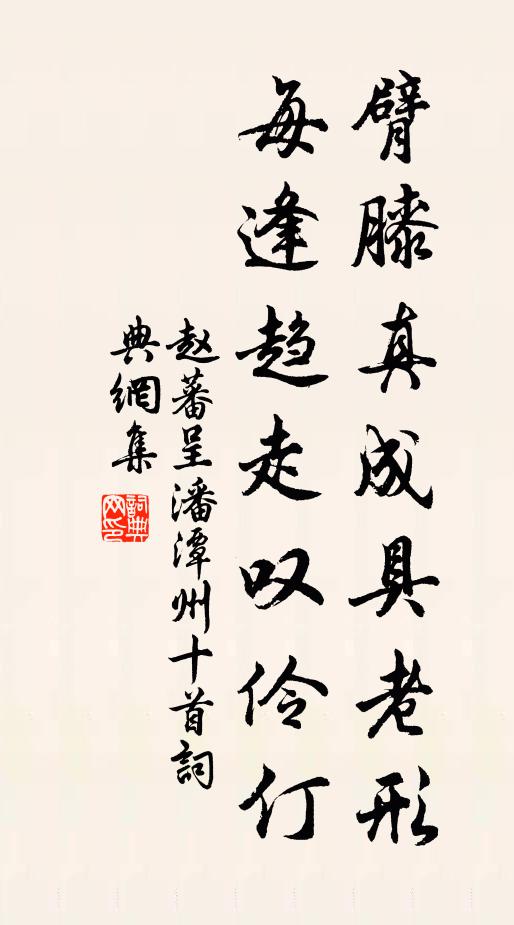 臂膝真成具老形
每逢趋走叹伶仃
赵蕃呈潘潭州十首詞
典網集
詞典網印